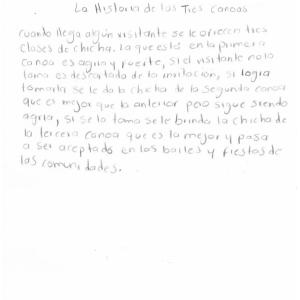 La Historia de las Tres canoas
cuando llega algún visitante se le ofrecen tres
clases de chicha. La que está en la primera
canoa es agria y fuerte, si el visitante no lo
toma es descartado de la invitación, si logra
tomarla se le da la chicha de la segunda canoa
que es mejor que la anterior pero sigue siendo
agria, si se la toma se le brinda la chicha de
la tercera canoa que es la mejor y pasa
a ser aceptado en los bailes y fiestas de
las comunidades.